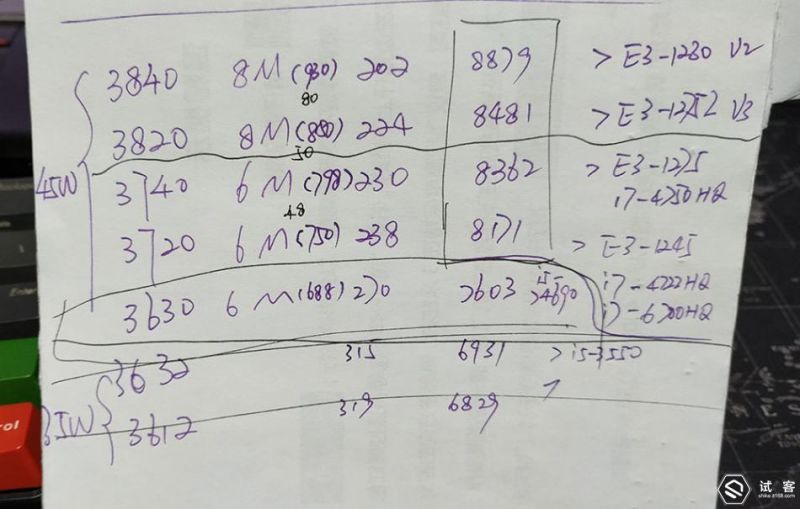 3840 8M (930) 202 8879 > E3-1230 V2
80
3820 8M (850) 224 8481 > E3-1275L V3
50
45W
3740 6M (798) 230 8362 > E3-1275
i7-4750HQ
48
3720 6M (750) 238 8171 > E3-1245
i7-4722HQ
3630 6M (688) 270 7603 i5-4690
i7-6700HQ
3632 315 6931 > i5-3550
35W
3612 319 6829
trol
试客
shike.it168.com